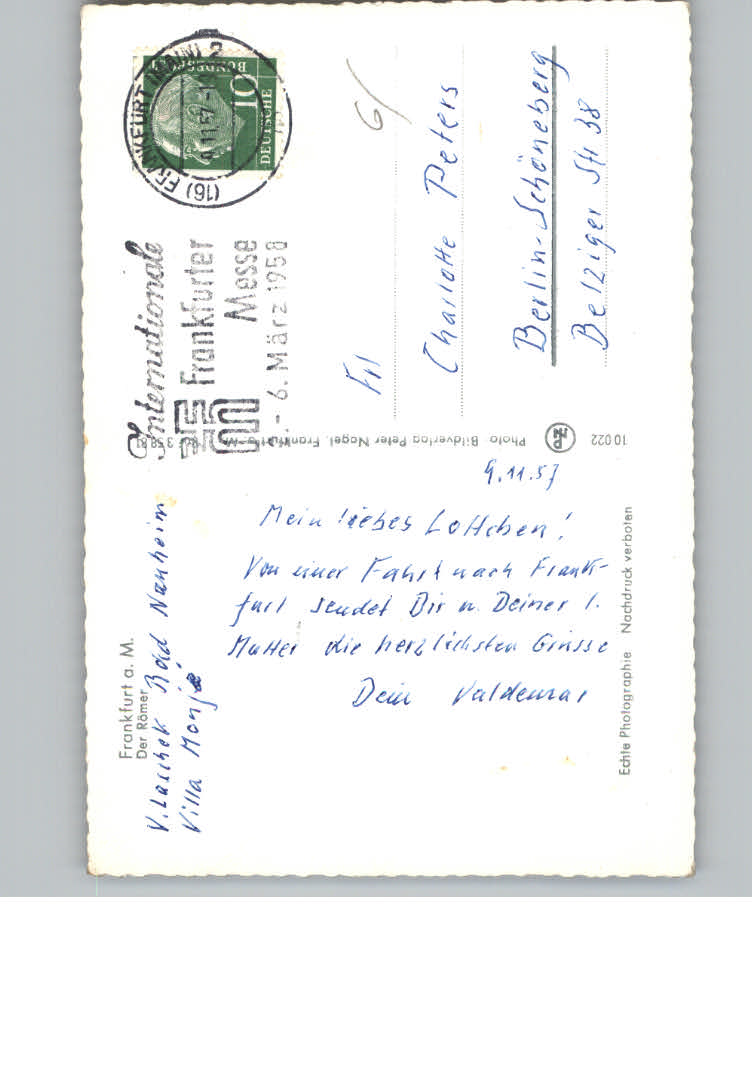 Frankfurt a. M.
Der Römer
V. Laschek Bad Nauheim
Villa Monja
9.11.57
Mein liebes Lottchen!
Von einer Fahrt nach Frank-
furt sendet Dir u. Deiner l.
Mutter die herzlichsten Grüsse
Dein Valdemar
Echte Photographie Nachdruck verboten
Photo Bildverlag Peter Nagel, Frankfurt a. M.
10 022
(16) FRANKFURT (MAIN) 2
9.11.57
DEUTSCHE
BUNDESPOST
10
Internationale
Frankfurter
Messe
- 6. März 1958
Frl
Charlotte Peters
Berlin-Schöneberg
Belziger Str 38